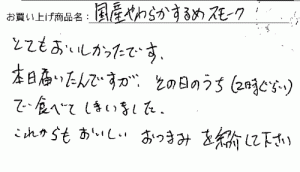 お買い上げ商品名：国産やわらかするめスモーク
とてもおいしかったです。
本日届いたんですが、その日のうち(2時間ぐらい)
で食べてしまいました。
これからもおいしいおつまみを紹介して下さい